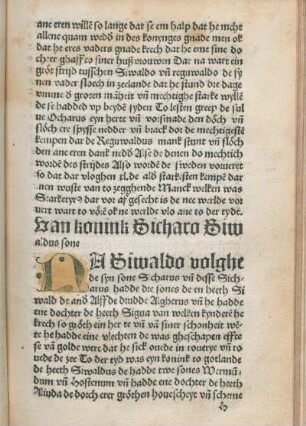 ane eren willē so lange dat se em halp dat he nicht
allene quam wedd̄ in des konynges gnade men ok
dat he eres vaders gnade krech dat he eme sine do
chter ghaff to siner huß vrouwen Dar na wart ein
grot strid tusschen Siwaldo vn̄ regnwaldo de sy
nen vader sloech in zeelande dat he stund dre dage
vm̄me d grotē māheit vn̄ mechtighe starke wyllē
de se hadded vp beyde syden To lesten greep de sul
ue Otharus eyn herte vn̄ vorsinade den döch vn̄
slöch ere spysse nedder vn̄ brack dor de mechtigestē
kempen dar de Regnwaldus mank stunt vn̄ slöch
den ane eren dank nedd̄ Alse de denen do mechich
wordē des strydes Also wordē de sweden voruert
so dat dar vloghen xl. de ald starkstē kempē dar
nen wuste van to zegghende Manck welken was
Starkerꝰ dar vor aff gesecht is de nee werlde vor
uert wart to vörē ok ne werlde vlo ane to der tyde.
Van konink Sicharo Siw
aldus sone
NA Siwaldo volghe
de syn sone Sicharus vn̄ desse Sich
arus hadde dre sones de en heeth Si
wald de and Alff de drudde Algherus vn̄ he hadde
ene dochter de heeth Signa van welken kynderē he
krech so gröth ein her te vn̄ vā siner schonheit wēn
te he hadde eine vlechten de was gheschapen effte
se vā golde were dat he sick ouede in rouerye vn̄ ro
uede de zee To der tyd was eyn konink to gotlande
de heeth Siwaldus de hadde twe sones Wermū
dum vn̄ Hostenum vn̄ hadde ene dochter de heeth
Aluida de dorch erer gröthen houescheyt vn̄ schone
h